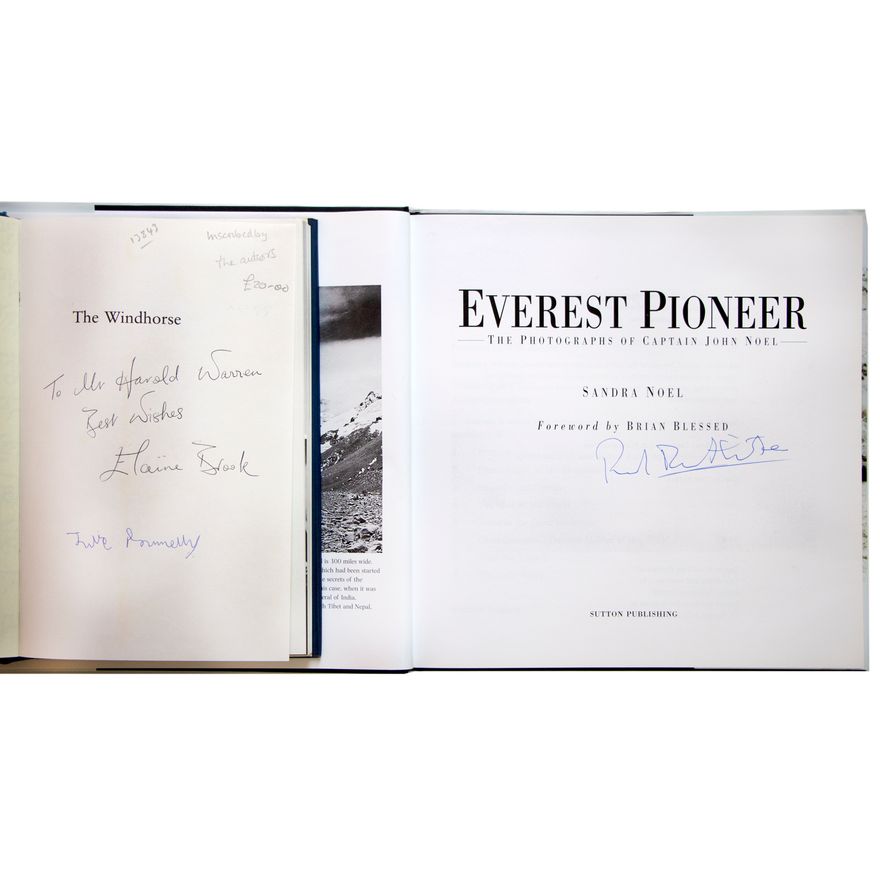 13843
Inscribed by
the authors
£20-00
The Windhorse
To Mr Harold Warren
Best Wishes
Elaine Brook
Julie Donnelly
is 100 miles wide.
hich had been started
e secrets of the
is case, when it was
eral of India.
h Tibet and Nepal.
EVEREST PIONEER
THE PHOTOGRAPHS OF CAPTAIN JOHN NOEL
SANDRA NOEL
Foreword by BRIAN BLESSED
SUTTON PUBLISHING